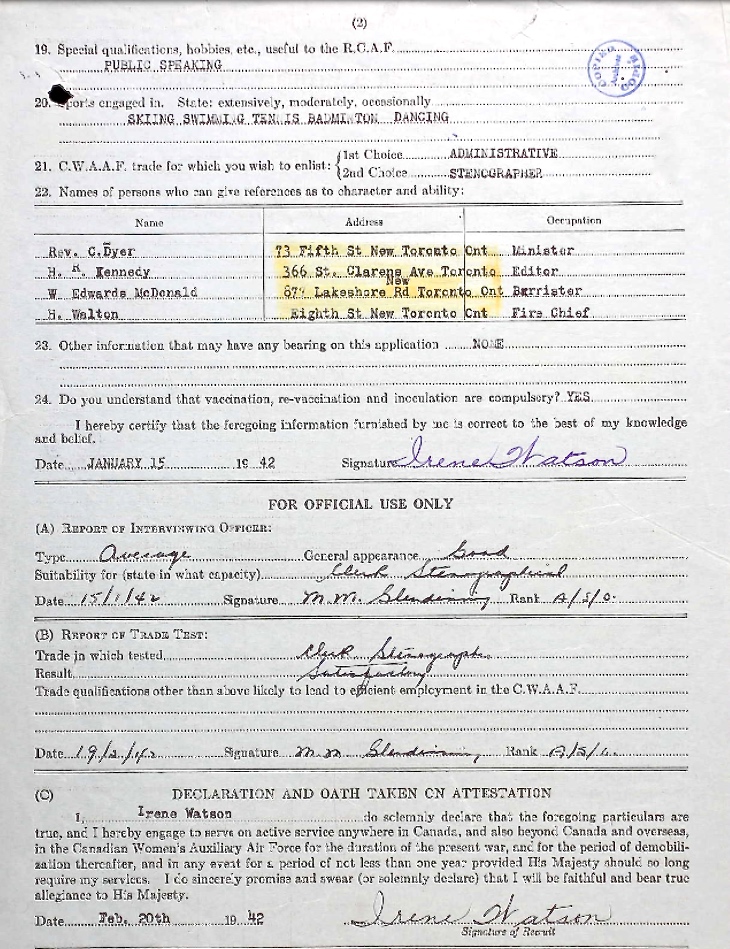 (2)
19. Special qualifications, hobbies, etc., useful to the R.C.A.F.
PUBLIC SPEAKING
COPIED
20. Sports engaged in. State: extensively, moderately, occasionally
SKIING SWIMMING TENNIS BADMINTON DANCING
21. C.W.A.A.F. trade for which you wish to enlist: 1st Choice ADMINISTRATIVE
2nd Choice STENOGRAPHER
22. Names of persons who can give references as to character and ability:
Name Address Occupation
Rev. C.Dyer 73 Fifth St New Toronto Ont Minister
H. R. Kennedy 366 St. Clarens Ave Toronto Editor
New
W Edwards McDonald Lakeshore Rd Toronto Ont Barrister
H. Walton Eighth St New Toronto Ont Fire Chief
23. Other information that may have any bearing on this application NONE
24. Do you understand that vaccination, re-vaccination and inoculation are compulsory? YES
I hereby certify that the foregoing information furnished by me is correct to the best of my knowledge
and belief.
Date JANUARY 15 19 42 Signature Irene Watson
FOR OFFICIAL USE ONLY
(A) REPORT OF INTERVIEWING OFFICER:
Type Average General appearance Good
Suitability for (state in what capacity) Clerk Stenographical
Date 15/1/42 Signature M.M. Glendinning Rank A/S/O.
(B) REPORT OF TRADE TEST:
Trade in which tested Clerk Stenograph
Result Satisfactory
Trade qualifications other than above likely to lead to efficient employment in the C.W.A.A.F.
Date 19/2/42 Signature M.M. Glendinning Rank A/S/O.
(C) DECLARATION AND OATH TAKEN ON ATTESTATION
I, Irene Watson do solemnly declare that the foregoing particulars are
true, and I hereby engage to serve on active service anywhere in Canada, and also beyond Canada and overseas,
in the Canadian Women's Auxiliary Air Force for the duration of the present war, and for the period of demobili-
zation thereafter, and in any event for a period of not less than one year provided His Majesty should so long
require my services. I do sincerely promise and swear (or solemnly declare) that I will be faithful and bear true
allegiance to His Majesty.
Date Feb. 20th 19 42 Irene Watson
Signature of Recruit